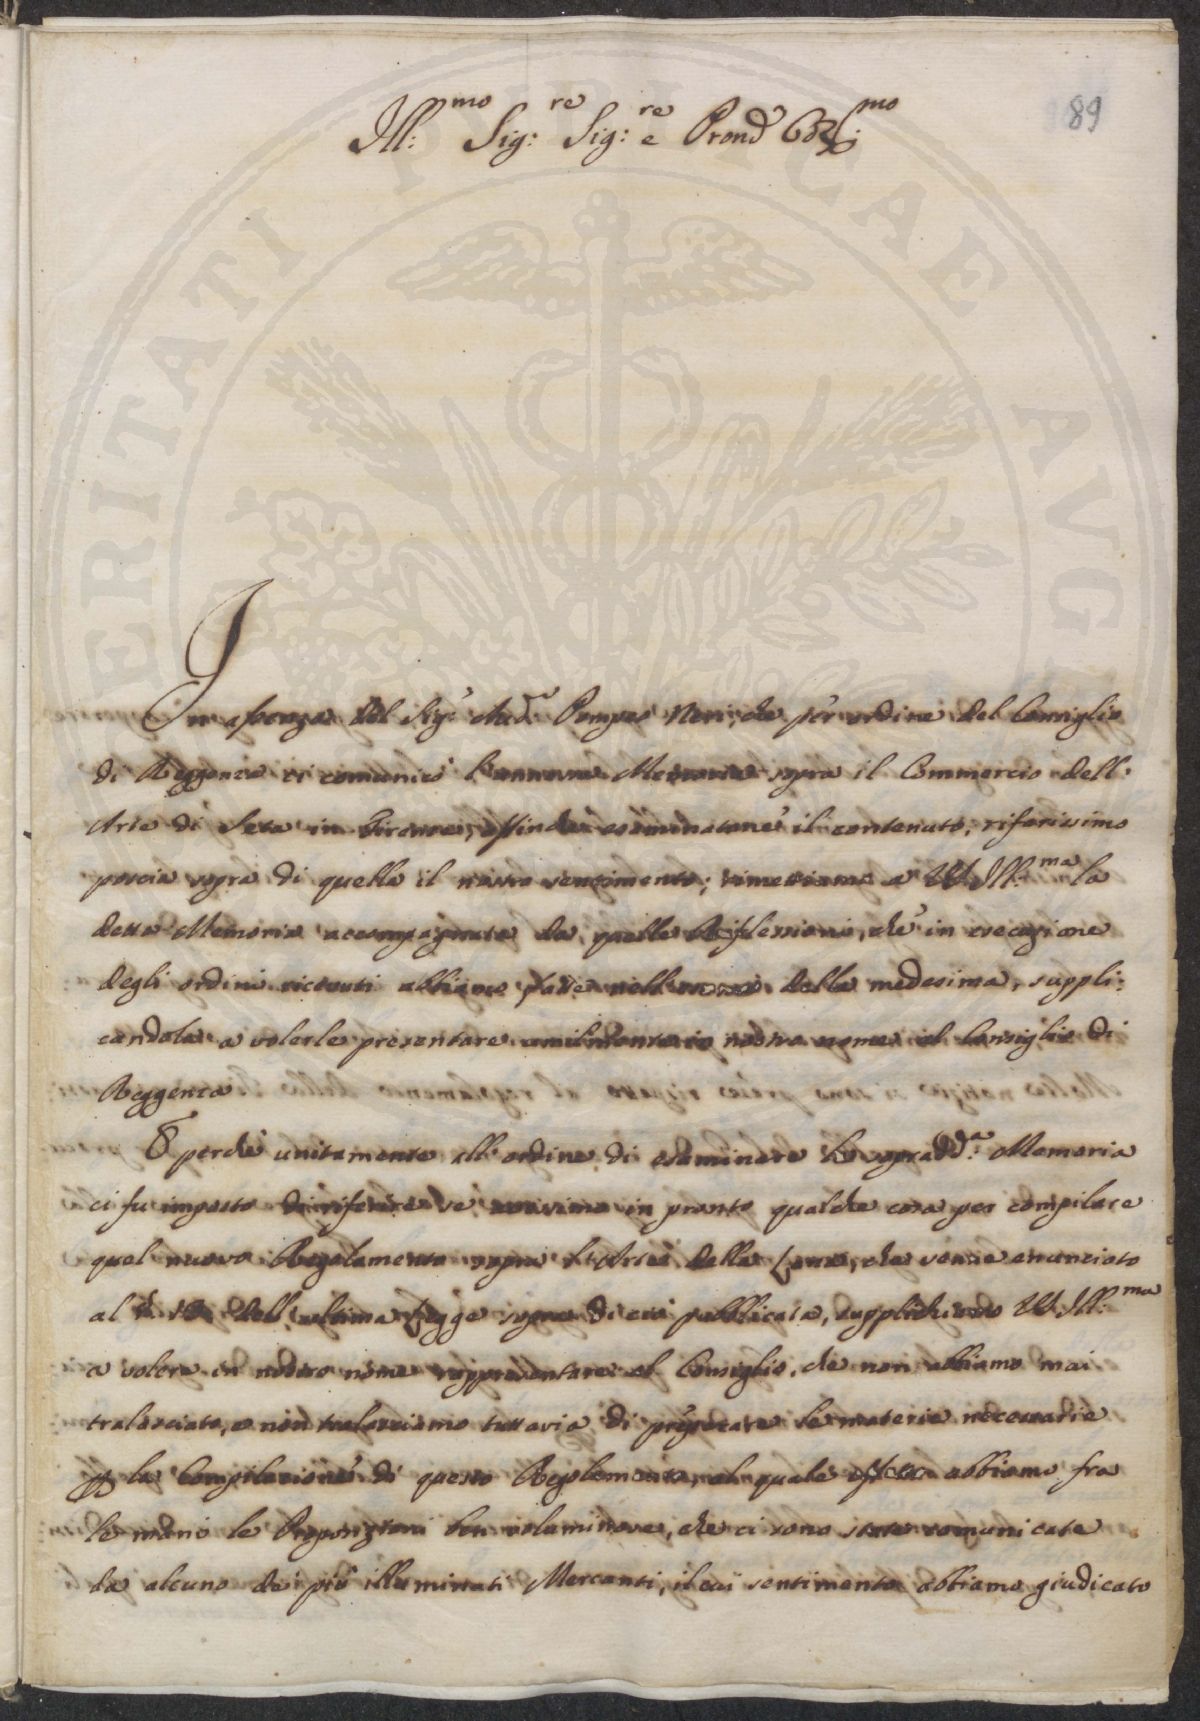 89
Ill:mo Sig:re Sig:re e Pron
In assenza del Sig: Aud.e Pompeo Neri, che per ordine del Consiglio
di Reggenza ci comunicò l'annessa Memoria sopra il Commercio dell'
Arte di Seta in Firenze, affinche esaminatone il contenuto, riferissimo
poscia sopra di quella il nostro sentimento; rimettiamo a VS. Ill:ma la
detta Memoria accompagnata da quelle Riflessioni, che in esecuzione
degli ordini ricevuti abbiamo fatte nell' della medesima, suppli:
candola a volerle presentare umilmente in nostro nome al Consiglio di
Reggenza
E perchè unitamente all' ordine di esaminare la sopradd.a Memoria
ci fu imposto di riferire se avevimo in pronto qualche cosa per compilare
quel nuovo Regolamento sopra l'Arte della Seta, che venne enunciato
al § dell' ultima Legge sopra di ciò pubblicata, supplichiamo VS. Ill:ma
a volere in nostro nome rappresentare al Consiglio, che non abbiamo mai
tralasciato, e non tralasciamo tuttavia di preparare le materie necessarie
p la Compilazione di questo Regolamento, al quale effetto abbiamo fra
le mani le Proposizioni ben voluminose, che ci sono state comunicate
da alcuno dei più illuminati Mercanti, il cui sentimento abbiamo giudicato
ERITATI PVBLICAE AVG